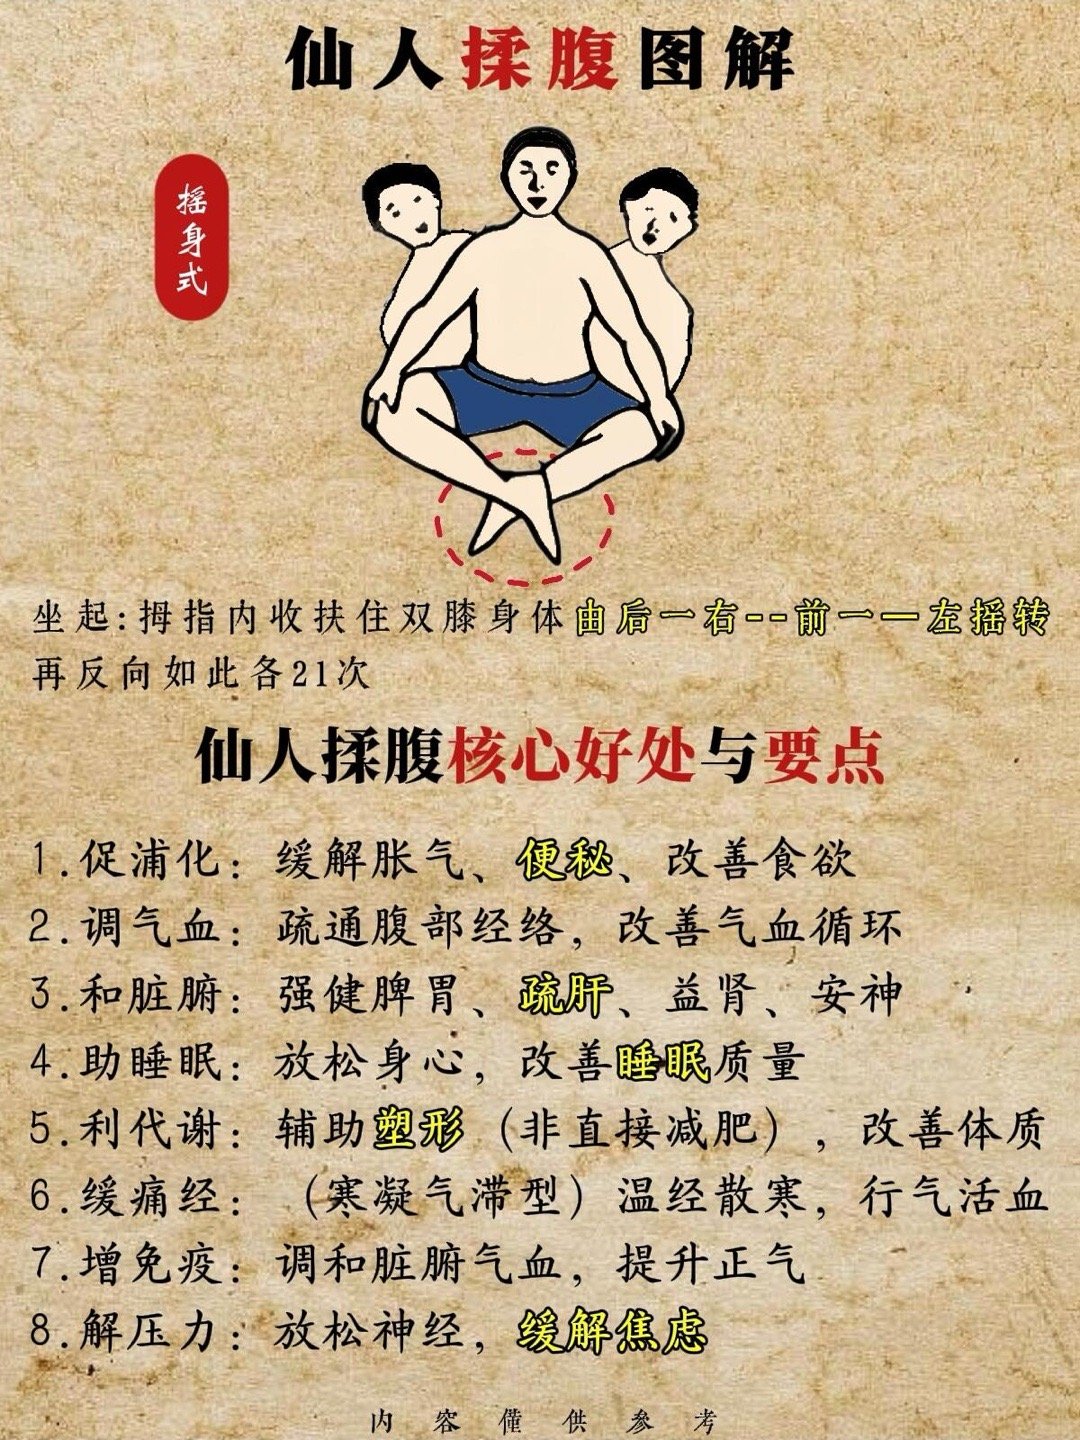 仙人揉腹图解
摇身式
坐起:拇指内收扶住双膝身体由后一右--前一一左摇转
再反向如此各21次
仙人揉腹核心好处与要点
1.促浦化：缓解胀气、便秘、改善食欲
2.调气血：疏通腹部经络，改善气血循环
3.和脏腑：强健脾胃、疏肝、益肾、安神
4.助睡眠：放松身心，改善睡眠质量
5.利代谢：辅助塑形（非直接减肥），改善体质
6.缓痛经：（寒凝气滞型）温经散寒，行气活血
7.增免疫：调和脏腑气血，提升正气
8.解压力：放松神经，缓解焦虑
内容僅供参考